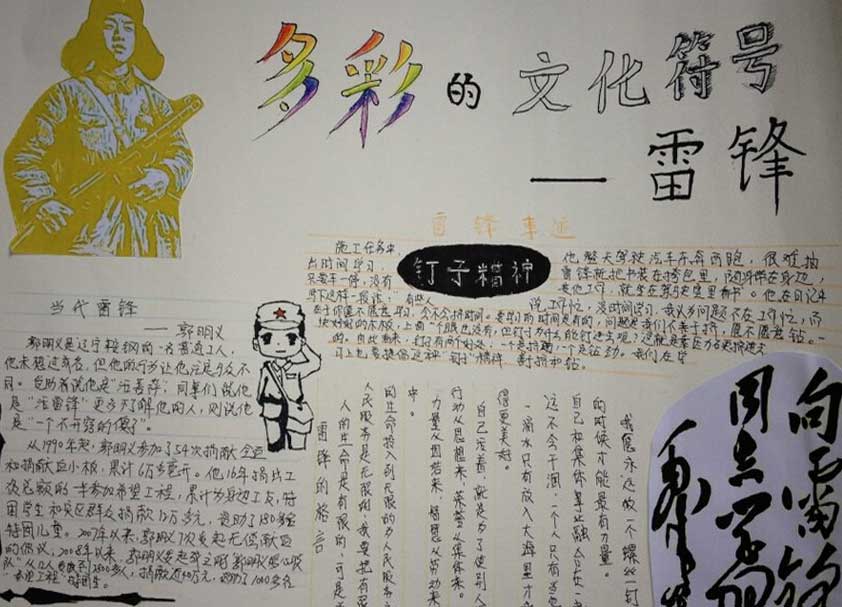 多彩的文化符号
—雷锋
雷锋事迹
钉子精神
施工任务中,
他整天驾驶汽车东奔西跑,很难抽
出时间学习,
雷锋就把书装在挎包里,随身带在身边,
只要车一停,没有
坐在驾驶室里看书。他在日记中
写下这样一段话:“有些人
说工作忙,没时间学习,我认为问题不在工作忙,而
在于你愿不愿意学习,会不会挤时间。要学习的时间是有的,问题是我们善不善于挤,愿不愿意钻。一
块好好的木板,上面一个眼也没有,但钉子为什么能钉进去呢?这就是靠压力
的,由此看来,钉子有两个好处:一个是挤劲,一个是钻劲。我们在学
习上也要提倡这种“钉子”精神,善于挤和钻。
当代雷锋
——郭明义
郭明义是辽宁鞍钢的一名普通工人,
他未想过成名,但他的行为让他注定与众不
同。
是“活雷锋”更多了解他的人,则说他
是“一个不开窍的傻子”。
从1990年起,郭明义参加了54次捐献全血
和捐献血小板,累计6万多毫升。他16年捐出工
资总额的一半参加希望工程,累计为身边工友,特
困学生和灾区群众捐款12万多元,资助了180多名
特困儿童。2007年以来,郭明义7次发起无偿献血
的倡议,2008年以来,
捐款近40万元,资助了1000多名
我愿永远做一个螺丝钉
的时候才能最有力量。
自己和集体事业融合在一
这不会干涸,一个人只有当他
一滴水只有放入大海里才
得更美好。
自己活着,就是为了使别人
行动从思想来,荣誉从集体来。
力量从团结来,智慧从劳动来
中。
的生命投入到无限的为人民服务之
人民服务是无限的,我要把有限
人的生命是有限的,可是
雷锋的格言
向雷锋
同志学习
毛泽东